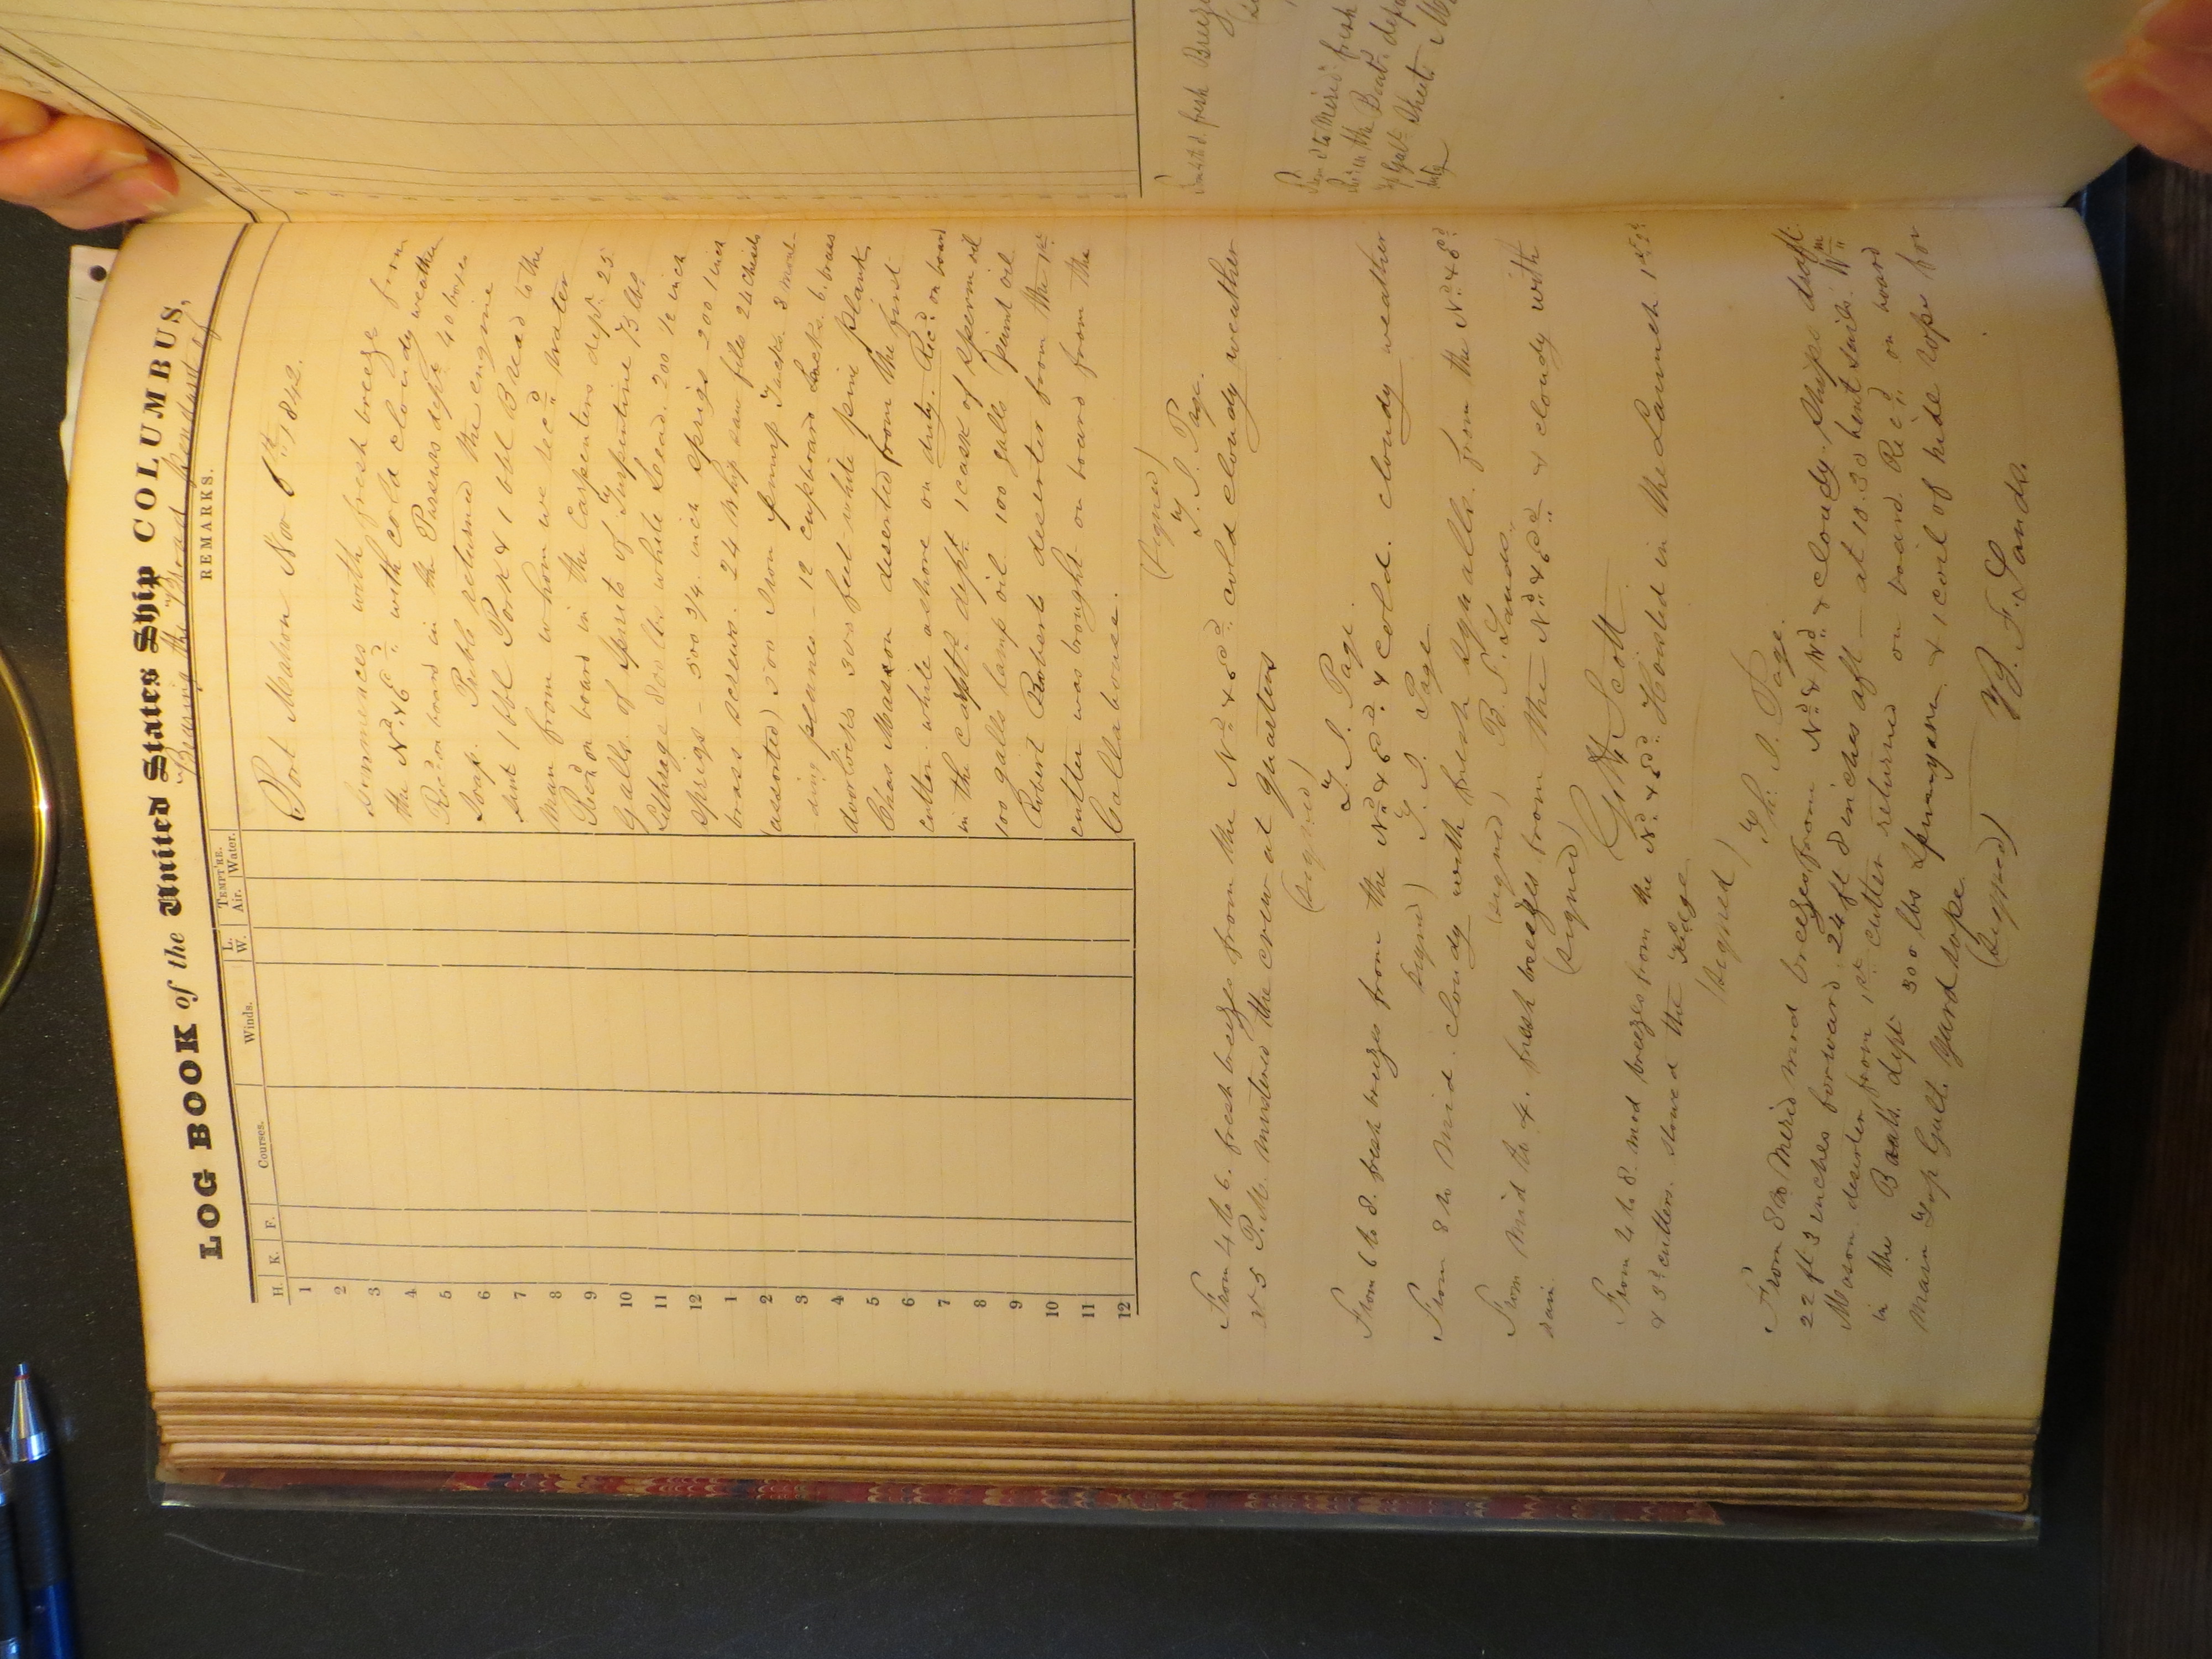 LOG BOOK of the United States Ship COLUMBUS,
"Bearing the Broad Pendant of
H. K. F. Courses. Winds. L. W. TEMPT'RE. Air. Water. REMARKS.
Port Mahon Nov 6th 1842.
1
2
3
4
5
6
7
8
9
10
11
12
1
2
3
4
5
6
7
8
9
10
11
12
Commences with fresh breeze from
the Nd. & Ed. with cold cloudy weather
Recd on board in the Pursers dept 40 boxes
Soap. returned the engine
sent 1 bbl Pork & 1 bbl Bread to the
Man from whom we recd water
Recd on board in the Carpenters dept. 25
Galls. of Spirits of Turpentine 73 lbs
Litharge 800 lbs white Lead. 200 1/2 inch
Sprigs - 500 3/4 inch sprigs 200 1 inch
brass screws. 24 Whip saw files 24 Chisels
(assorted) 300 Iron pump Tacks 8 moul-
ding planes - 12 cupboard Locks. 6. brass
doorlocks 300 feet white pine plank
Chas Mason deserted from the first
cutter while ashore on duty. Recd on board
in the Capts. dept. 1 cask of Sperm oil
100 galls lamp oil 100 galls paint oil
Robert Roberts deserter from the 1st
cutter was brought on board from the
Callaboose.
(Signed)
T. J. Page.
From 4 to 6. fresh breezes from the Nd & Ed cold cloudy weather
at 5 P.M. mustered the crew at quarters
(Signed)
T. J. Page.
From 6 to 8. fresh breezes from the Nd. & Ed. & cold. cloudy weather
signed) T. J. Page
From 8 to Mid. cloudy with fresh squalls. from the Nd. & Ed.
(signed) B. F. Sands.
From Mid to 4. fresh breezes from the Nd. & Ed. & cloudy with
rain.
(signed) G. H. Scott
From 4 to 8. mod breezes from the Nd. & Ed. Hoisted in the Launch 1st 2d
& 3d cutters. stowed the Kedge
(signed)
Th. J. Page.
From 8 to Merid mod breezes from Nd. & Wd. & cloudy. Ships draft
22 ft 3 inches forward 24 ft 8 inches aft - at 10.30 bent sails. Wm
Mason deserter from 1st cutter returned on board. Recd on board
in the Boats. dept 300 lbs Spunyarn & 1 coil of hide rope for
Main Top Gallt Yard rope.
(Signed)
B. F. Sands.
fresh Breeze
to Merid fresh
in the Boats. depa
Gallt Sheets